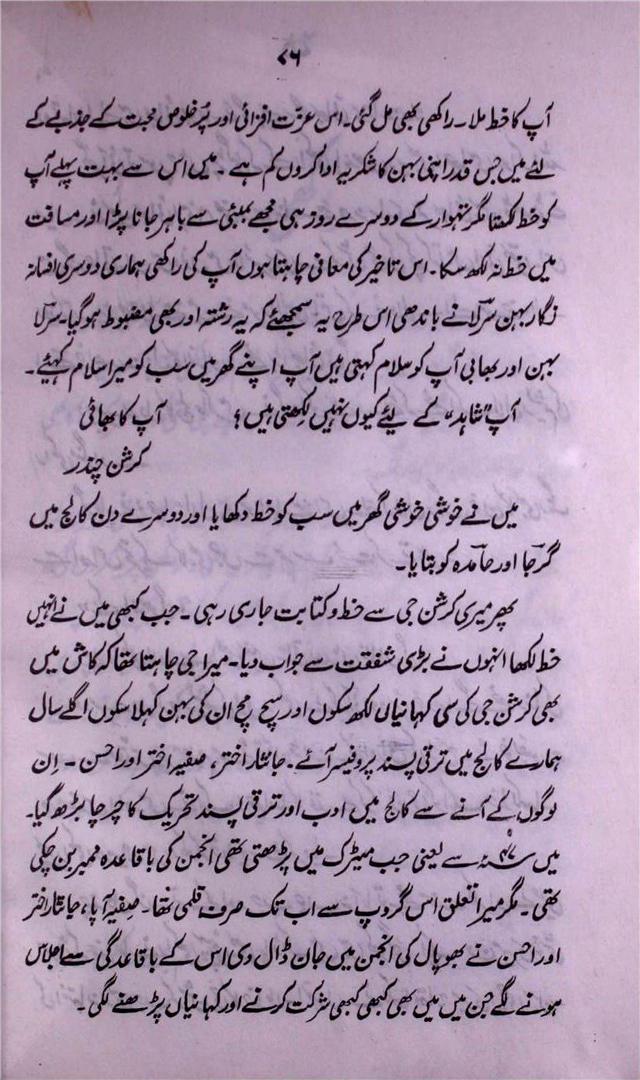 ۷۶
آپ کا خط ملا۔ راکھی بھی مل گئی۔ اس عزت افزائی اور پُر خلوص محبت کے جذبے کے
لئے میں جس قدر اپنی بہن کا شکریہ ادا کروں کم ہے۔ میں اس سے بہت پہلے آپ
کو خط لکھتا مگر تہوار کے دوسرے روز ہی مجھے بمبئی سے باہر جانا پڑا اور مسافت
میں خط نہ لکھ سکا۔ اس تاخیر کی معافی چاہتا ہوں آپ کی راکھی ہماری دوسری افسانہ
نگار بہن سرلا نے باندھی اس طرح یہ سمجھئے کہ یہ رشتہ اور بھی مضبوط ہوگیا۔ سرلا
بہن اور بھابی آپ کو سلام کہتی ہیں آپ اپنے گھر میں سب کو میرا سلام کہئے۔
آپ "شاہد" کے لیئے کیوں نہیں لکھتی ہیں؟ آپ کا بھائی
کرشن چندر
میں نے خوشی خوشی گھر میں سب کو خط دکھایا اور دوسرے دن کالج میں
گرجا اور حامدہ کو بتایا۔
پھر میری کرشن جی سے خط و کتابت جاری رہی۔ جب کبھی میں نے انہیں
خط لکھا انہوں نے بڑی شفقت سے جواب دیا۔ میرا جی چاہتا تھا کہ کاش میں
بھی کرشن جی کی سی کہانیاں لکھ سکوں اور سچ مچ ان کی بہن کہلا سکوں اگلے سال
ہمارے کالج میں ترقی پسند پروفیسر آئے۔ جانثار اختر، صفیہ اختر اور احسن ۔ اِن
لوگوں کے آنے سے کالج میں ادب اور ترقی پسند تحریک کا چرچا بڑھ گیا۔
میں ۴۷ء سنہ سے یعنی جب میٹرک میں پڑھتی تھی انجمن کی باقاعدہ ممبر بن چکی
تھی۔ مگر میرا تعلق اس گروپ سے اب تک صرف قلمی تھا۔ صفیہ آپا، جانثار اختر
اور احسن نے بھوپال کی انجمن میں جان ڈال دی اس کے باقاعدگی سے اجلاس
ہونے لگے جن میں میں بھی کبھی کبھی شرکت کرنے اور کہانیاں پڑھنے لگی۔